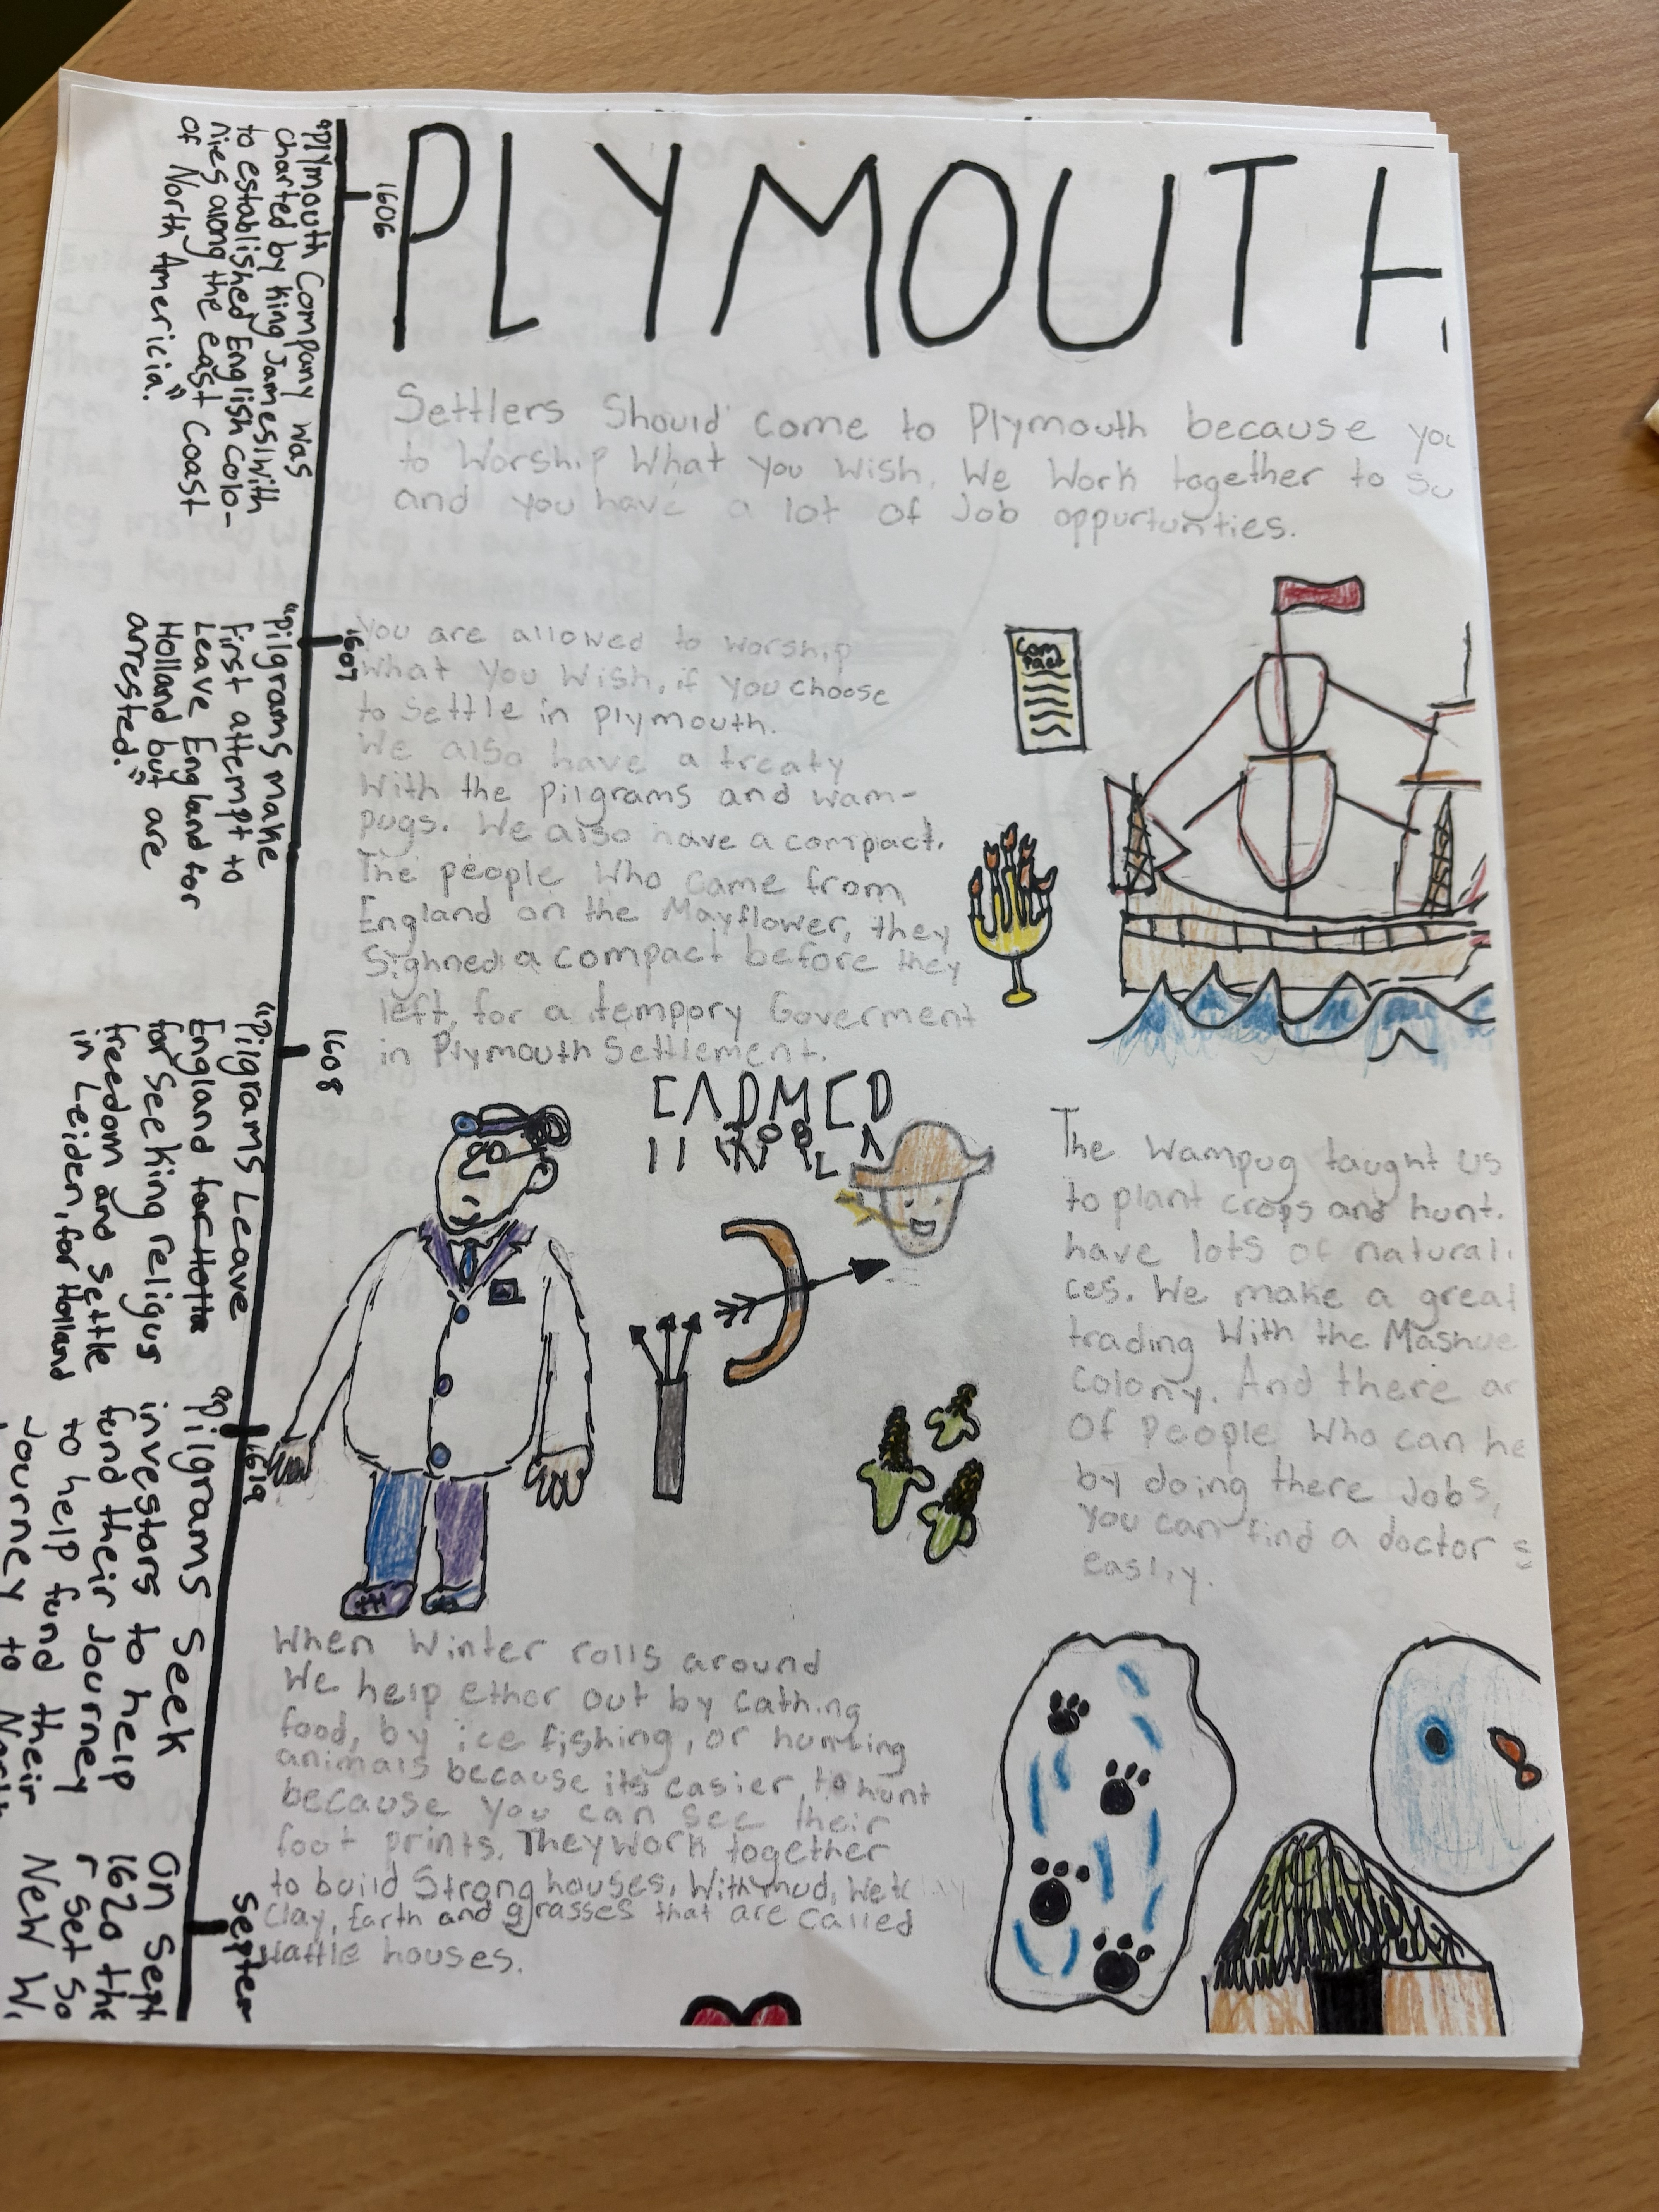 PLYMOUTH
Settlers Should come to Plymouth because you
to Worship What you Wish. We Work together to su
and you have a lot of Job oppurtunities.
You are allowed to worship
What You Wish, if you choose
to Settle in plymouth.
We also have a treaty
With the pilgrams and wam-
pugs. We also have a compact.
The people Who came from
England on the Mayflower, they
Sighned a compact before they
left, for a tempory Goverment
in Plymouth Settlement.
Com
pact
The Wampug taught us
to plant crops and hunt.
have lots of natural
ces. We make a great
trading With the Mashue
Colony. And there ar
Of People Who can he
by doing there Jobs,
You can find a doctor s
easliy.
When Winter rolls around
We help ether out by cathing
food, by ice fishing, or hunting
animals because its easier to hunt
because you can see their
foot prints. They work together
to build Strong houses, With mud, Wet
Clay, Earth and grasses that are called
Wattle houses.
1606
"Plymouth Company was
charted by King James I with
to established English Colo-
nies along the east Coast
of North Americia."
1607
"Pilgrams make
first attempt to
Leave England for
Holland but are
arrested."
1608
"Pilgrams Leave
England for Holla
for Seeking religus
freedom and settle
in Leiden, for Holland
1619
"Pilgrams Seek
investors to help
fund their Journey
to help fund their
Journey to North
Septem
On Sept
1620 the
r Set So
New W